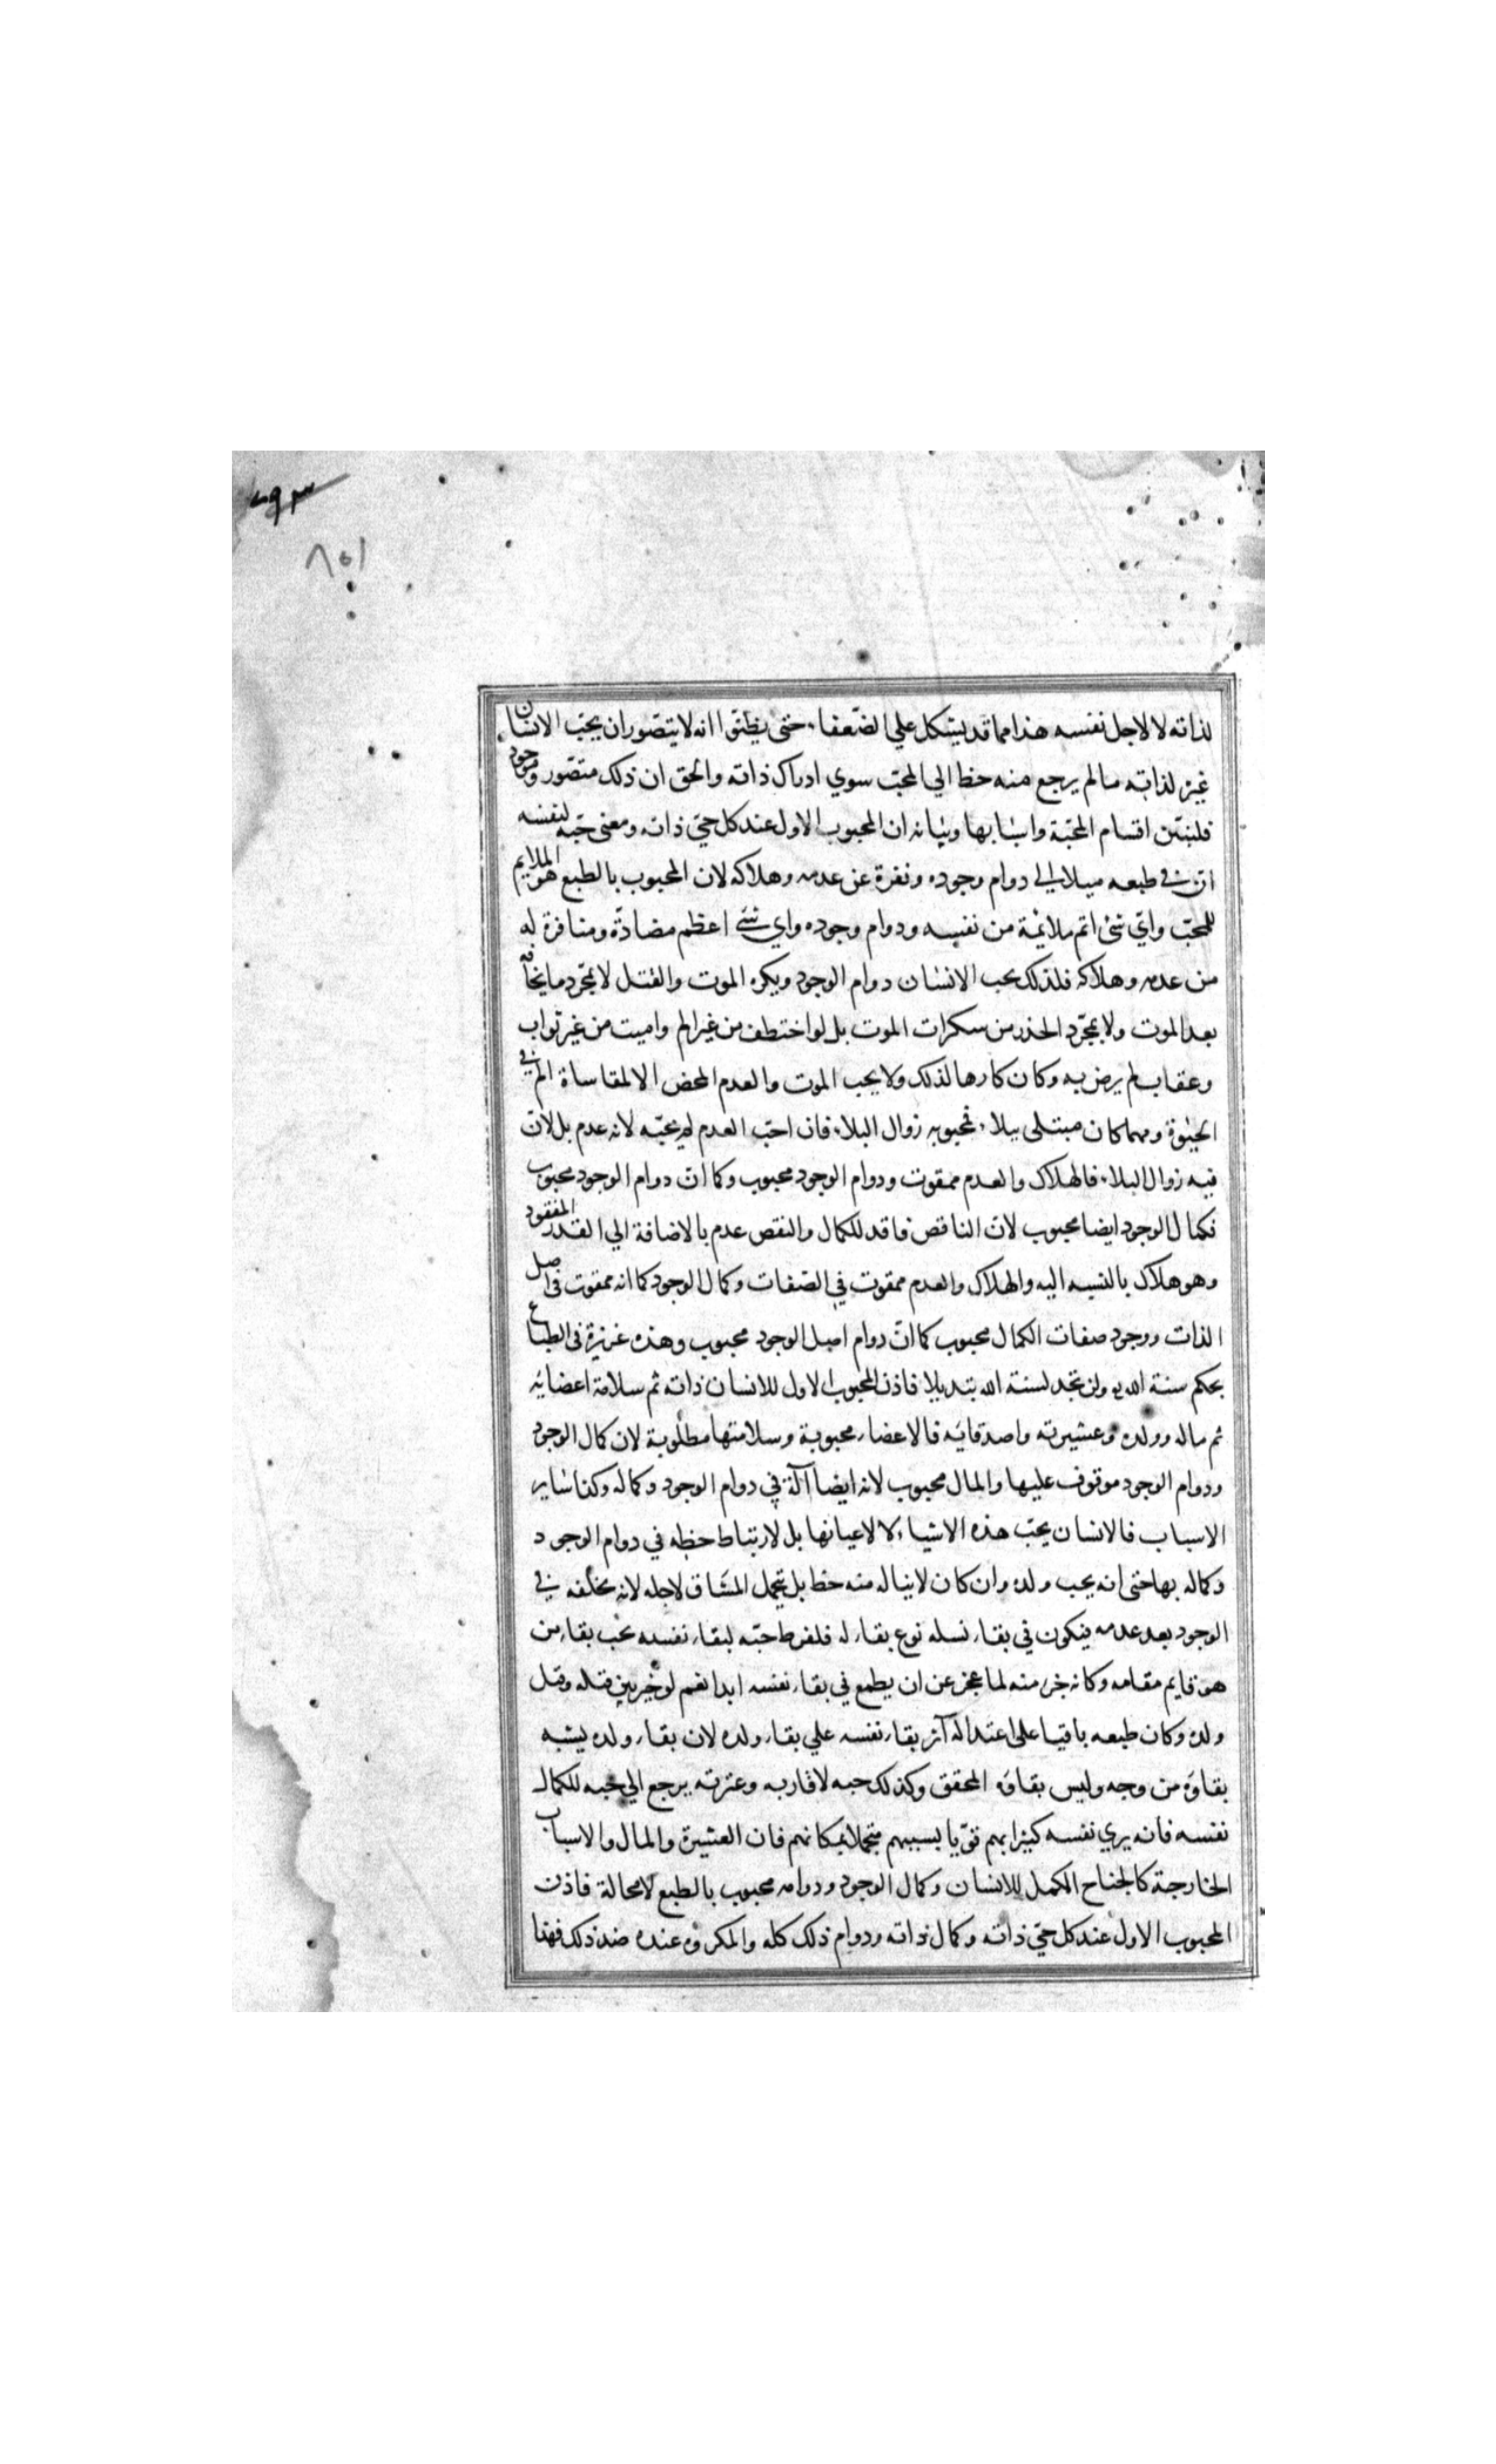 ٧٩٣
٨٥١
لذاته لا لاجل نفسه هذا مما قد يشكل علي الضّعفاء حتى يظنّوا انه لا يتصّور ان يحبّ الانسان
غيره لذاته مالم يرجع منه حظ الي المحبّ سوي ادراك ذاته والحق ان ذلك متصّور وموجود
فلنبيّن اقسام المحبّة واسبابها وبيانه ان المحبوب الاول عند كل حيّ ذاته ومعنى حبّه لنفسه
انّ في طبعه ميلا الي دوام وجوده ونفرة عن عدمه وهلاكه لان المحبوب بالطبع هو الملايم
للمحبّ وايّ شئ اتم ملائمة من نفسه ودوام وجوده واي شئ اعظم مضادّة ومنافرة له
من عدمه وهلاكه فلذلك يحب الانسان دوام الوجود ويكره الموت والقتل لا بمجّرد ما يخافه
بعد الموت ولا بمجّرد الحذر من سكرات الموت بل لو اختطف من غير الم واميت من غير ثواب
وعقاب لم يرض به وكان كارها لذلك ولا يحب الموت والعدم المحض الا لمقاساة الم في
الحيٰوة ومهما كان مبتلى ببلاء فمحبوبه زوال البلاء فان احبّ العدم لم يحبّه لانه عدم بل لانّ
فيه زوال البلاء فالهلاك والعدم ممقوت ودوام الوجود محبوب وكما انّ دوام الوجود محبوب
فكمال الوجود ايضا محبوب لانّ الناقص فاقد للكمال والنقص عدم بالاضافة الي القدر المفقود
وهو هلاك بالنسبه اليه والهلاك والعدم ممقوت في الصّفات وكمال الوجود كما انه ممقوت في اصل
الذات ووجود صفات الكمال محبوب كما انّ دوام اصل الوجود محبوب وهذه غريزة في الطباع
بحكم سنة الله ولن تجد لسنة الله تبديلا فاذن المحبوب الاول للانسان ذاته ثم سلامة اعضايه
ثم ماله وولده وعشيرته واصدقائه فالاعضاء محبوبة وسلامتها مطلوبة لان كمال الوجود
ودوام الوجود موقوف عليها والمال محبوب لانه ايضا آلة في دوام الوجود وكماله وكذا ساير
الاسباب فالانسان يحبّ هذه الاشياء لا لاعيانها بل لارتباط حظه في دوام الوجود
وكماله بها حتى انه يحب ولده وان كان لا يناله منه حظ بل يتحمل المشاق لاجله لانه يخلفه في
الوجود بعد عدمه فيكون في بقاء نسله نوع بقاء له فلفرط حبّه لبقاء نفسه يحب بقاء من
هو قايم مقامه وكانه جزء منه لما عجز عن ان يطمع في بقاء نفسه ابدا نعم لو خير بين قتله وقتل
ولده وكان طبعه باقيا على اعتداله آثر بقاء نفسه علي بقاء ولده لان بقاء ولده يشبه
بقاؤه من وجه وليس بقاؤه المحقق وكذلك حبه لاقاربه وعترته يرجع الي حبه للكمال
نفسه فانه يري نفسه كبيرا بهم قوّيا بسببهم متجملا بمكانهم فان العشيرة والمال والاسباب
الخارجة كالجناح المكمل للانسان وكمال الوجود ودوامه محبوب بالطبع لا محالة فاذن
المحبوب الاول عند كل حيّ ذاته وكمال ذاته ودوام ذلك كله والمكروه عنده ضد ذلك فهذا